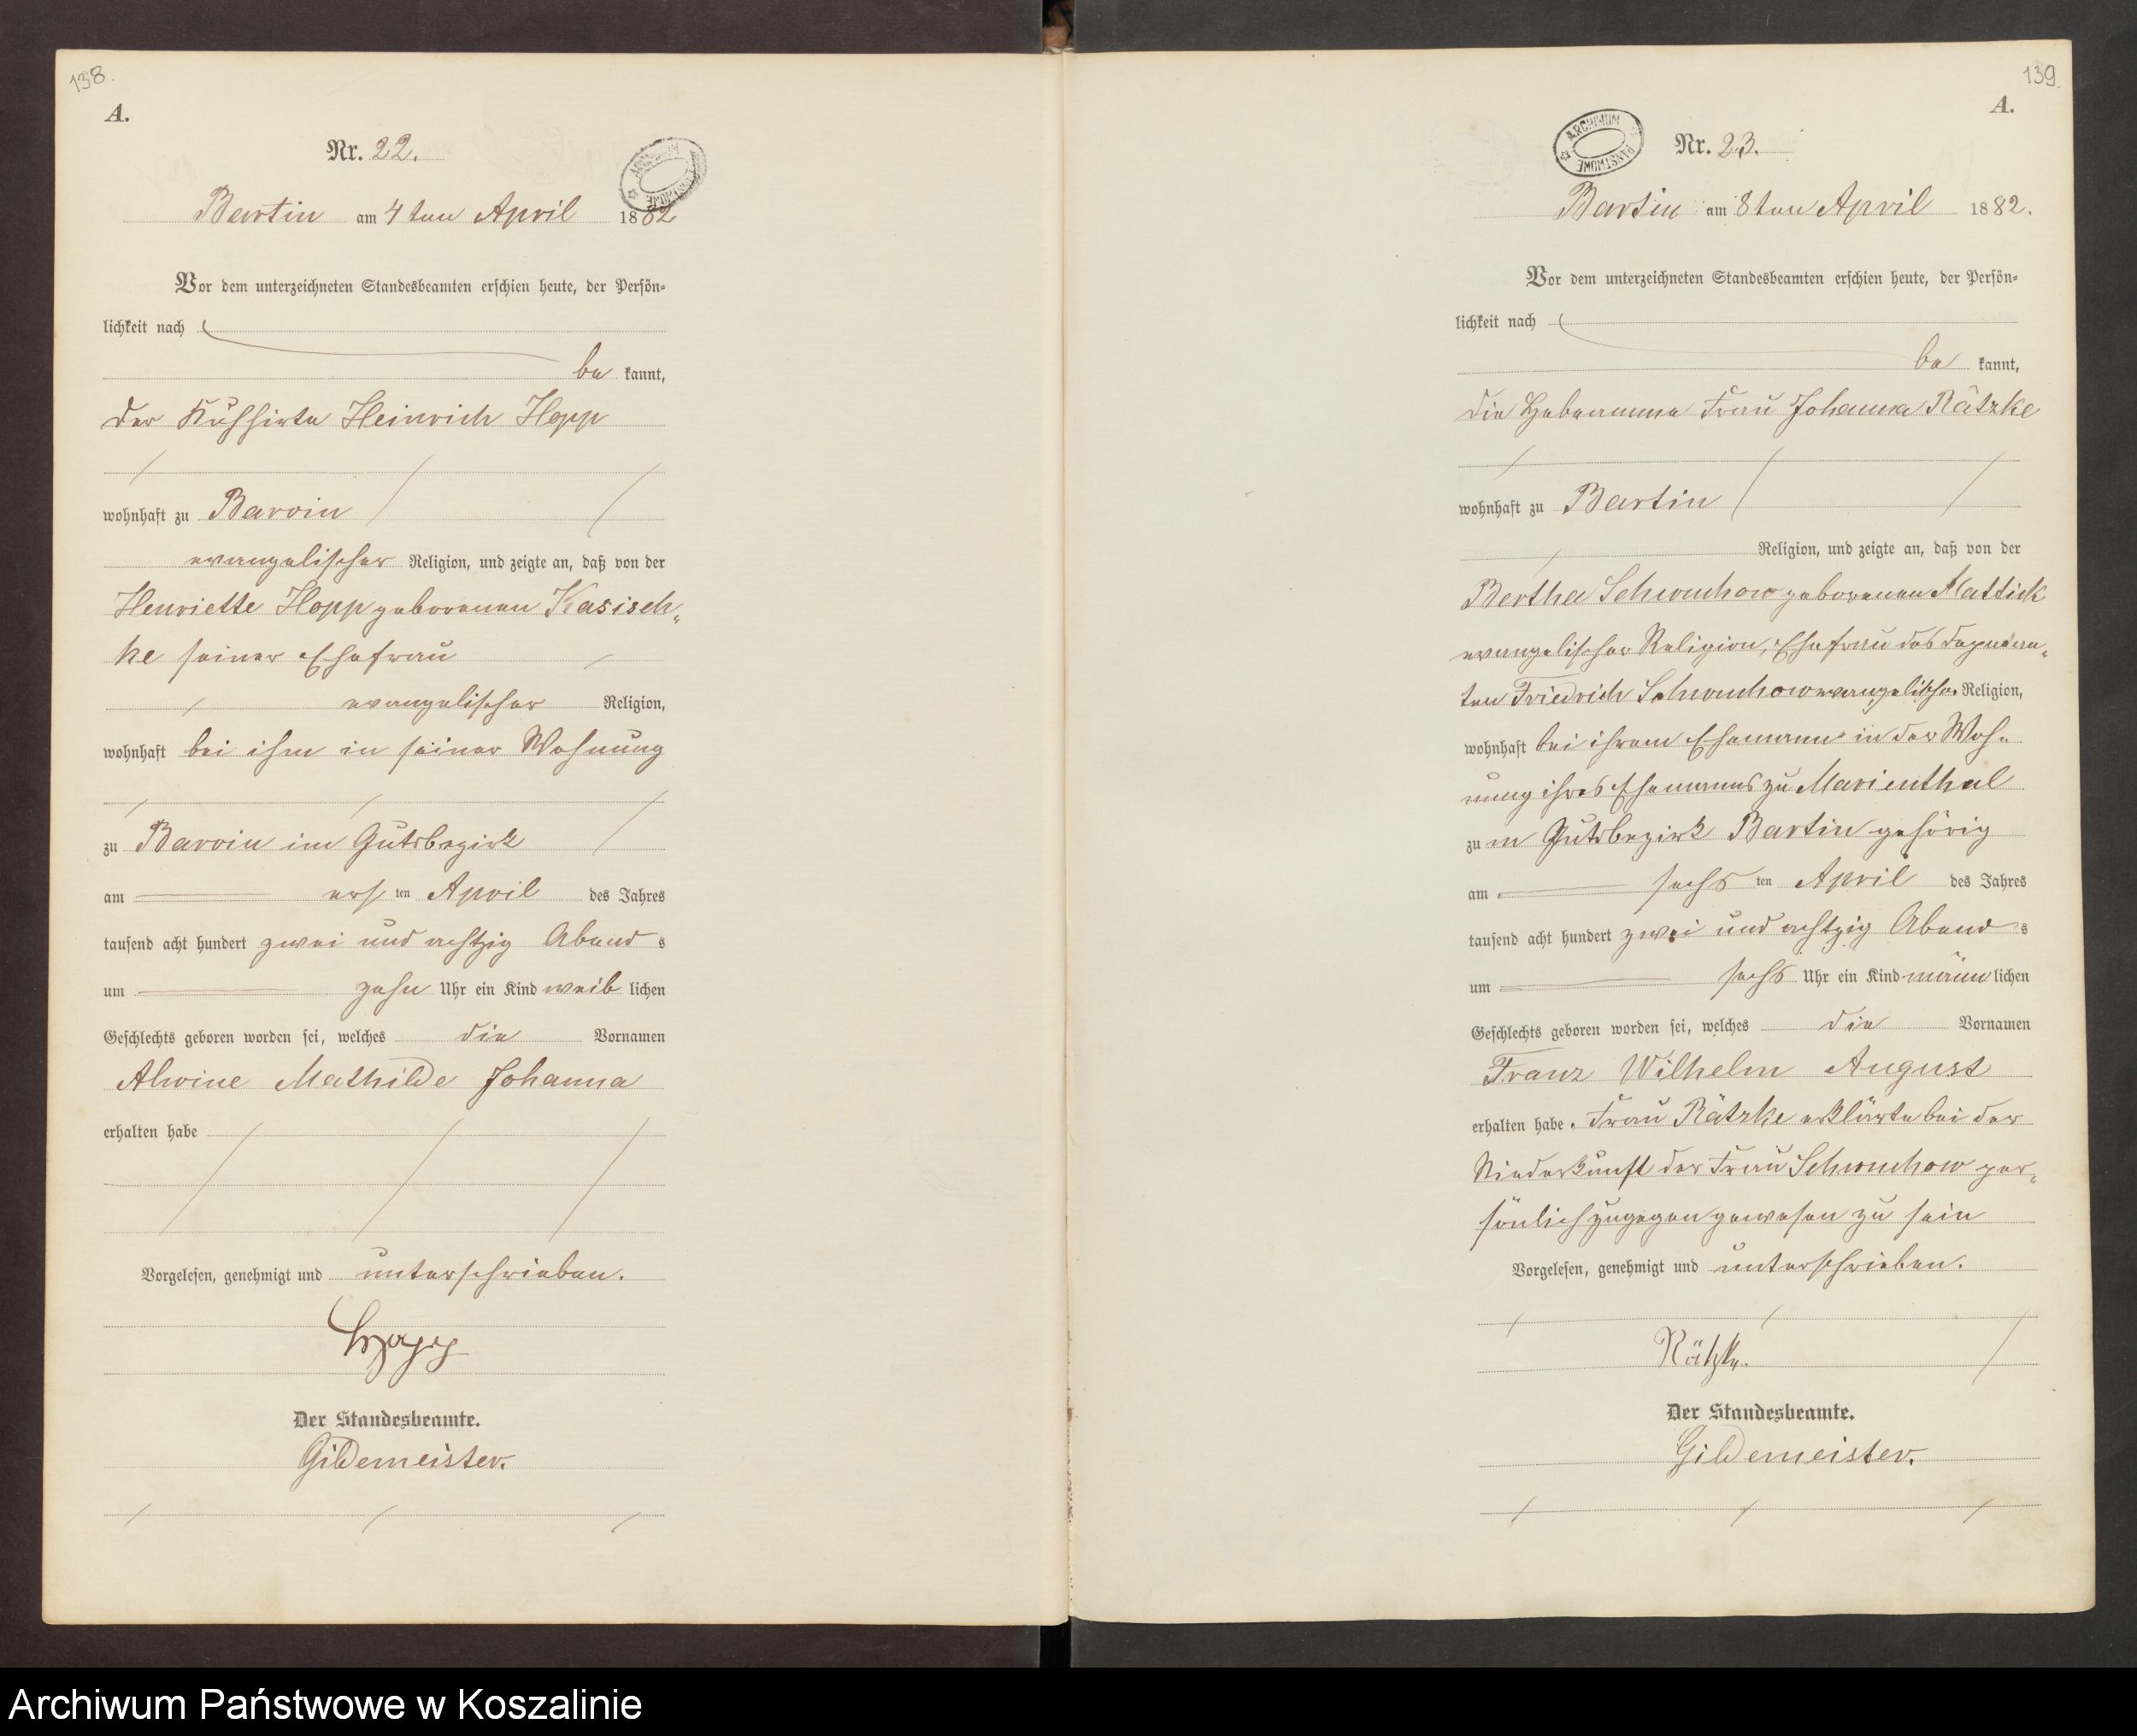 138.
A.
Nr. 22.
Bartin am 4ten April 1882
Vor dem unterzeichneten Standesbeamten erschien heute, der Persön-
lichkeit nach
be kannt,
der Kuhhirte Heinrich Hopp
wohnhaft zu Barvin
evangelischer Religion, und zeigte an, daß von der
Henriette Hopp geborenen Kasisch-
ke seiner Ehefrau
evangelischer Religion,
wohnhaft bei ihm in seiner Wohnung
zu Barvin im Gutsbezirk
am ersten April des Jahres
tausend acht hundert zwei und achtzig Abends
um zehn Uhr ein Kind weiblichen
Geschlechts geboren worden sei, welches die Vornamen
Alwine Mathilde Johanna
erhalten habe
Vorgelesen, genehmigt und unterschrieben.
Hopp
Der Standesbeamte.
Gildemeister.
139.
A.
ARCHIWUM PAŃSTWOWE
Nr. 23.
Bartin am 8ten April 1882.
Vor dem unterzeichneten Standesbeamten erschien heute, der Persön-
lichkeit nach
be kannt,
die Hebeamme Frau Johanna Rätzke
wohnhaft zu Bartin
Religion, und zeigte an, daß von der
Bertha Schwuchow geborenen Mattick
evangelischer Religion, Ehefrau des Deputan-
ten Friedrich Schwuchow evangelischer Religion,
wohnhaft bei ihrem Ehemann in der Woh-
nung ihres Ehemanns zu Marienthal
zum Gutsbezirk Bartin gehörig
am sechsten April des Jahres
tausend acht hundert zwei und achtzig Abends
um sechs Uhr ein Kind männlichen
Geschlechts geboren worden sei, welches die Vornamen
Franz Wilhelm August
erhalten habe. Frau Rätzke erklärte bei der
Niederkunft der Frau Schwuchow per-
sönlich zugegen gewesen zu sein
Vorgelesen, genehmigt und unterschrieben.
Rätzke.
Der Standesbeamte.
Gildemeister.
Archiwum Państwowe w Koszalinie